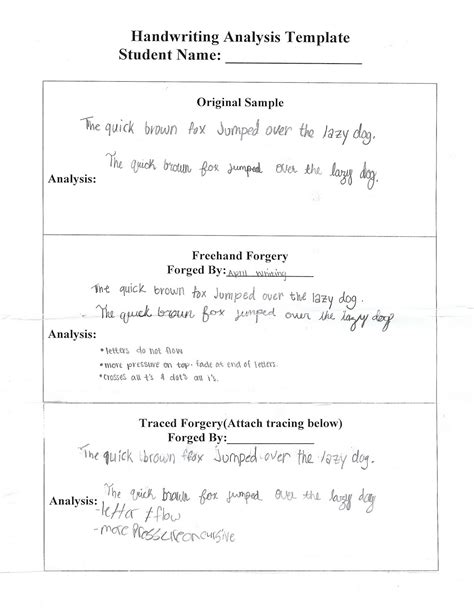 Handwriting Analysis Template
Student Name:
Original Sample
The quick brown fox Jumped over the lazy dog.
The quick brown fox jumped over the lazy dog.
Analysis:
Freehand Forgery
Forged By: April Writing
The quick brown fox Jumped over the lazy dog.
- The quick brown fox jumped over the lazy dog
Analysis:
*letters do not flow
*more pressure on top- fade at end of letters.
*crosses all t's & dots all i's.
Traced Forgery(Attach tracing below)
Forged By:
The quick brown fox Jumped over the lazy dog.
The quick brown fox jumped over the lazy dog
Analysis:
-letter flow
-more pressure on cursive